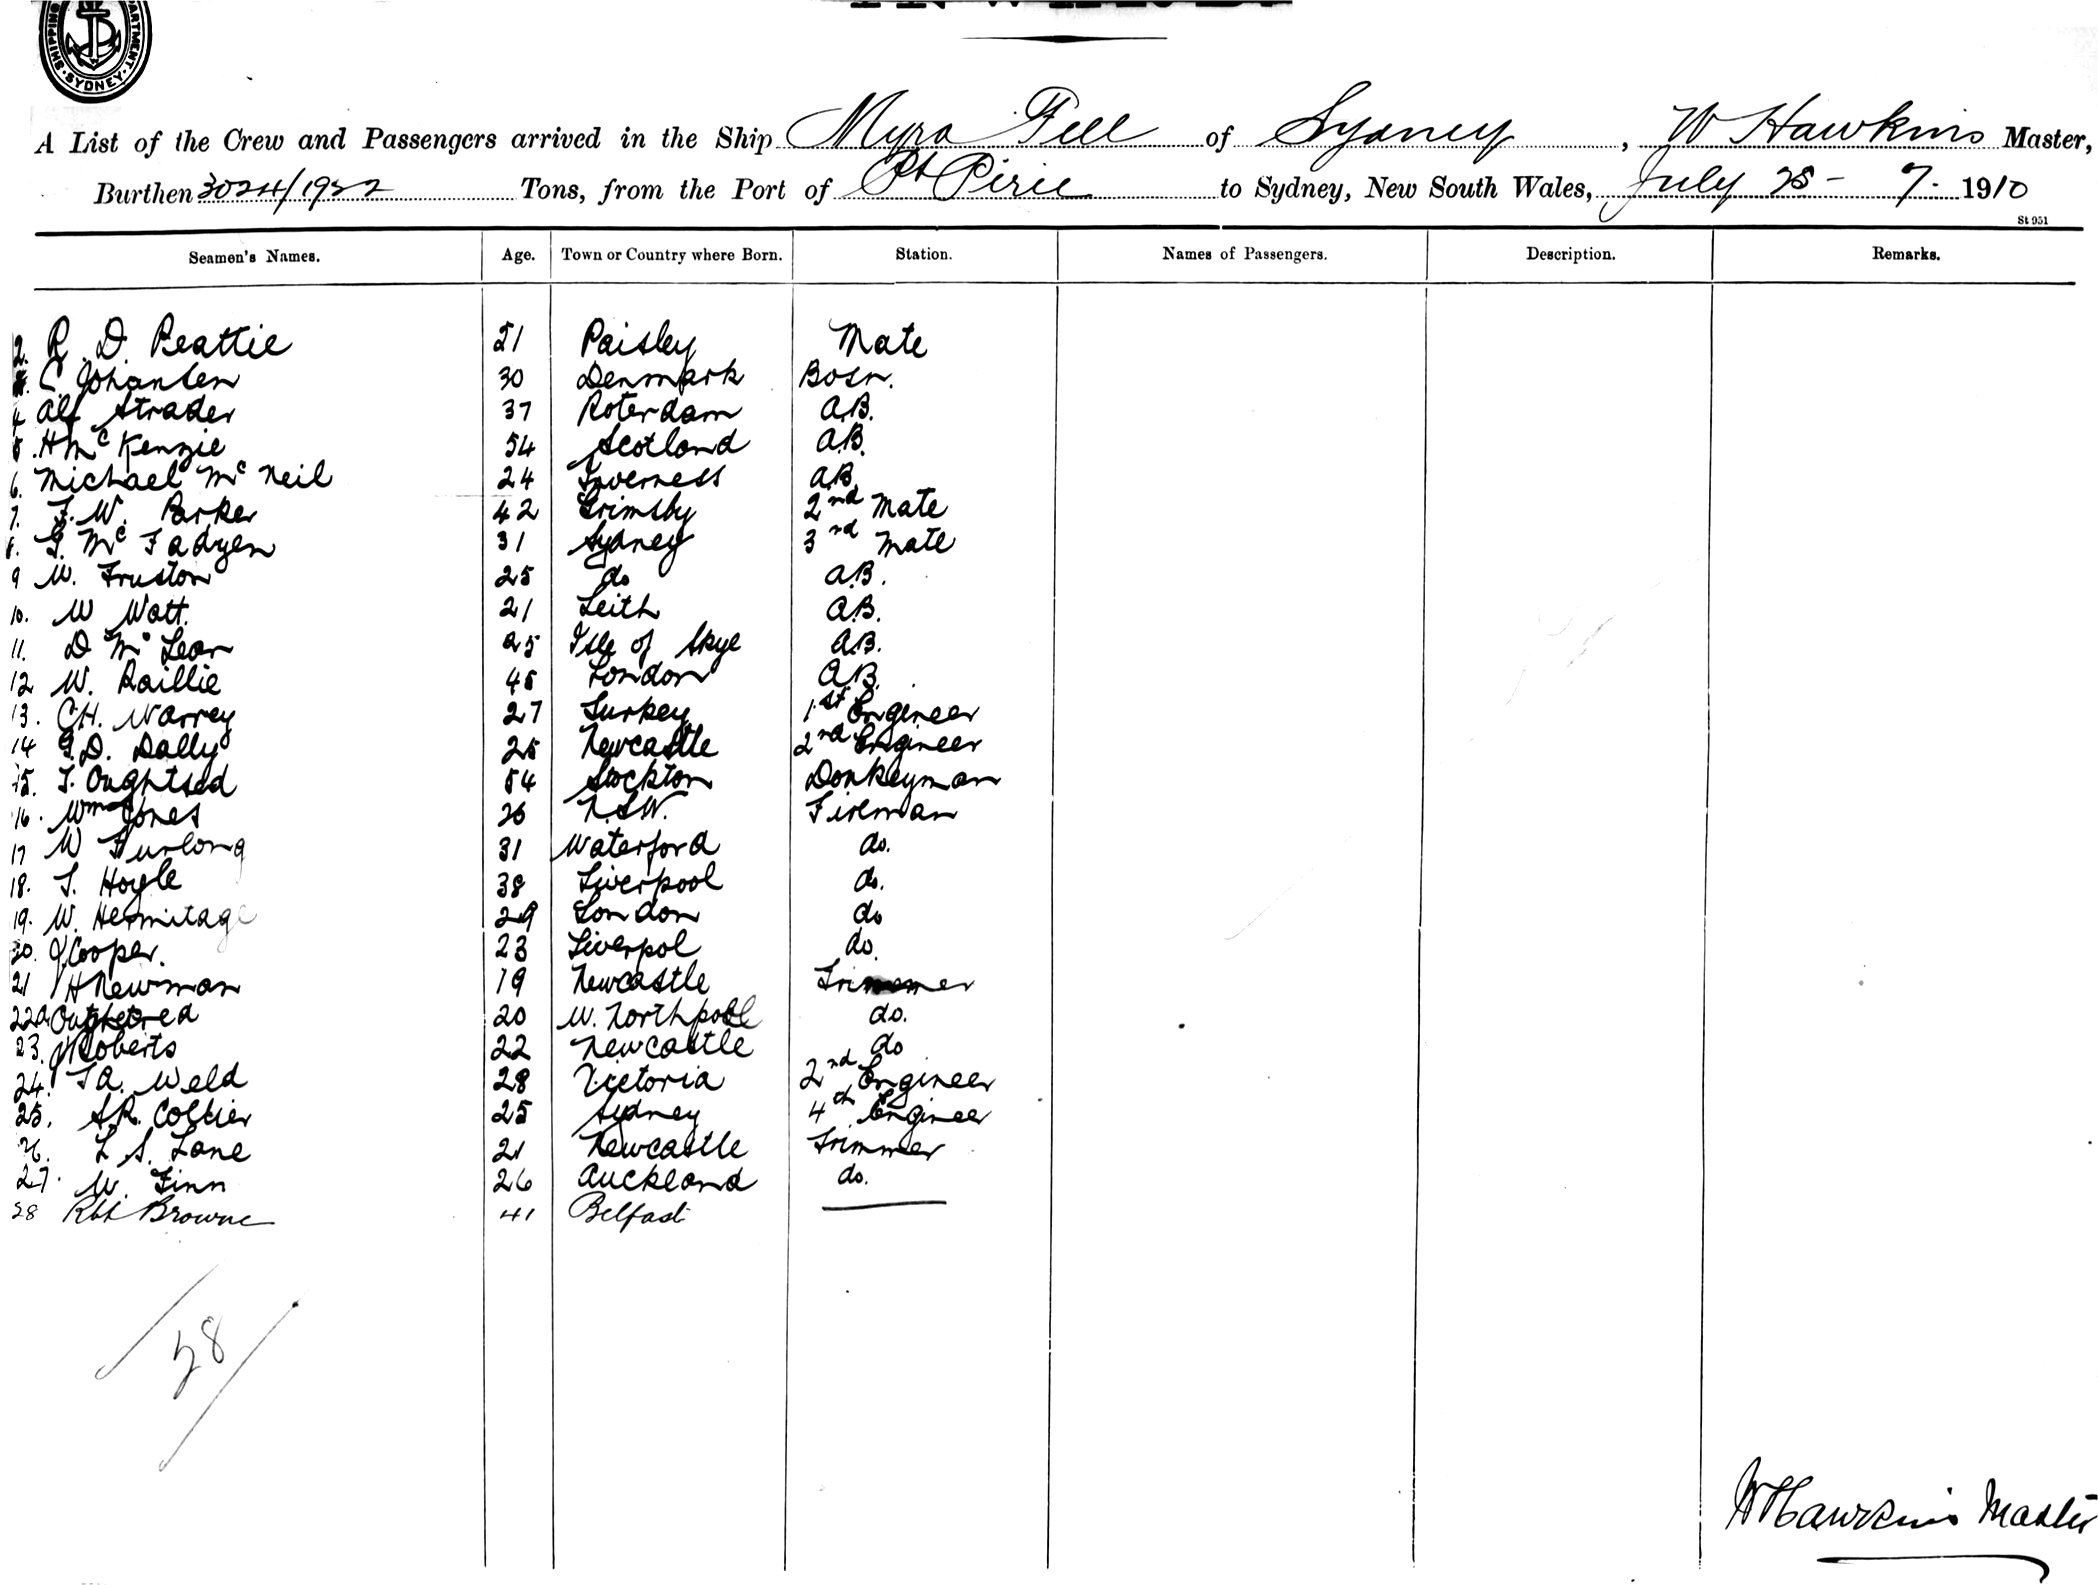 SHIPPING DEPARTMENT. SYDNEY.
A List of the Crew and Passengers arrived in the Ship Myra Fell of Sydney, W Hawkins Master,
Burthen 3024/1922 Tons, from the Port of Pt Pirie to Sydney, New South Wales, July 25 - 7. 1910
St 951
Seamen's Names. Age. Town or Country where Born. Station. Names of Passengers. Description. Remarks.
2. R. D. Beattie 51 Paisley Mate
C Johansen 30 Denmark Bosn.
4 Alf Strader 37 Roterdam A.B.
5. H Mc Kenzie 54 Scotland A.B.
6. Michael Mc Neil 24 Inverness AB
7. F. W. Parker 42 Grimsby 2nd Mate
8. G. Mc Fadyen 31 Sydney 3rd Mate
9 W. Fruston 25 do A.B.
10. W Watt. 21 Leith A.B.
11. D Mc Lean 25 Isle of Skye A.B.
12 W. Baillie 45 London A.B.
13. C.H. Warrey 27 Surkey 1st Engineer
14 G.D. Dally 25 Newcastle 2nd Engineer
15. T. Oughtsed 54 Stockton Donkeyman
16. Wm Jones 26 N.S.W. Fireman
17 W Furlong 31 Waterford do.
18. T. Hoyle 38 Liverpool do.
19. W. Hermitage 29 London do
20. J Cooper. 23 Liverpol do.
21 H Newman 19 Newcastle Trimmer
22 20 W. Northpool do.
23. J Roberts 22 Newcastle do
24. T A. Weld 28 Victoria 2nd Engineer
25. S.R. Collier 25 Sydney 4th Engineer
26. L S. Lane 21 Newcastle Trimmer
27. W. Finn 26 Auckland do.
28 Robt Browne 41 Belfast
28
W Hawkins Master